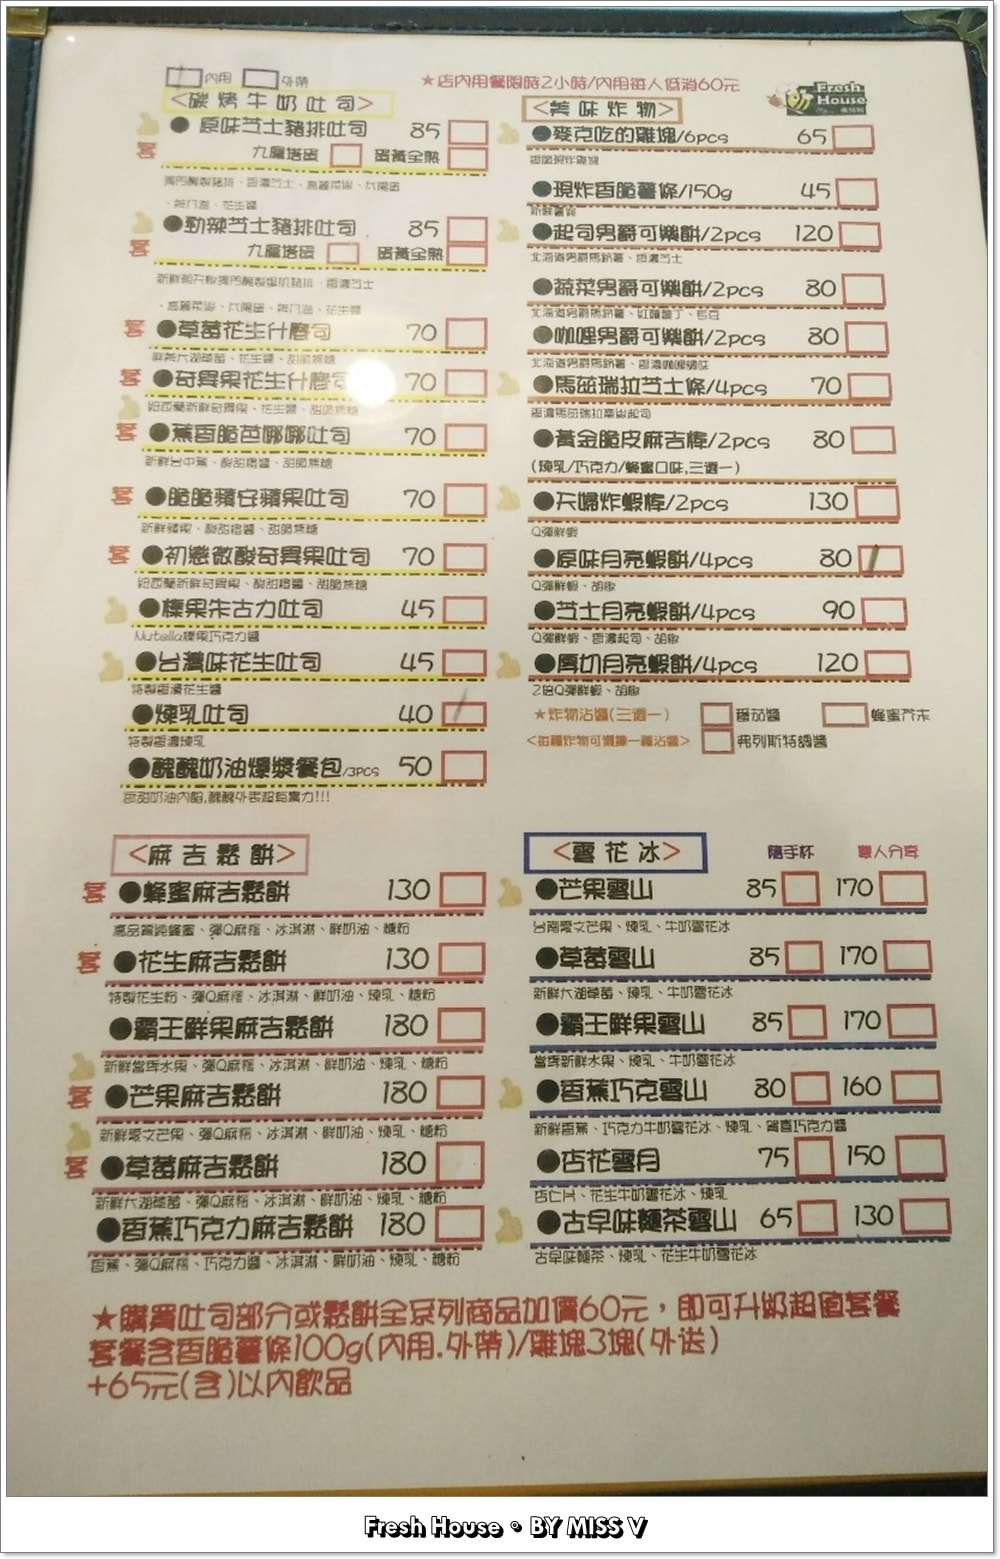 內用 外帶
★店內用餐限時2小時/內用每人低消60元
Fresh House
<碳烤牛奶吐司>
●原味芝士豬排吐司 85
套 九層塔蛋 蛋黃全熟
、花生醬
●勁辣芝士豬排吐司 85
套 九層塔蛋 蛋黃全熟
、花生醬
套 ●草莓花生什麼司 70
鮮採大湖草莓、花生醬、甜脆焦糖
套 ●奇異果花生什麼司 70
紐西蘭新鮮奇異果、花生醬、甜脆焦糖
套 ●蕉香脆芭娜娜吐司 70
新鮮台中蕉、酸甜橙醬、甜脆焦糖
套 ●脆脆蘋安蘋果吐司 70
新鮮蘋果、酸甜橙醬、甜脆焦糖
套 ●初戀微酸奇異果吐司 70
紐西蘭新鮮奇異果、酸甜橙醬、甜脆焦糖
●榛果朱古力吐司 45
Nutella榛果巧克力醬
●台灣味花生吐司 45
特製香滑花生醬
●煉乳吐司 40
特製香濃煉乳
●醜醜奶油爆漿餐包/3PCS 50
香甜奶油內餡,醜醜外表超有實力!!!
<美味炸物>
●麥克吃的雞塊/6pcs 65
香脆現炸雞塊
●現炸香脆薯條/150g 45
新鮮薯條
●起司男爵可樂餅/2pcs 120
北海道男爵馬鈴薯、香濃芝士
●蔬菜男爵可樂餅/2pcs 80
北海道男爵馬鈴薯、紅蘿蔔丁、毛豆
●咖哩男爵可樂餅/2pcs 80
北海道男爵馬鈴薯、香濃咖哩調味
●馬茲瑞拉芝士條/4pcs 70
香濃馬茲瑞拉牽絲起司
●黃金脆皮麻吉棒/2pcs 80
(煉乳/巧克力/蜂蜜口味,三選一)
●天婦炸蝦棒/2pcs 130
Q彈鮮蝦
●原味月亮蝦餅/4pcs 80
Q彈鮮蝦、胡椒
●芝士月亮蝦餅/4pcs 90
Q彈鮮蝦、香濃起司、胡椒
●厚切月亮蝦餅/4pcs 120
2倍Q彈鮮蝦、胡椒
★炸物沾醬(三選一) 番茄醬 蜂蜜芥末
<每種炸物可選擇一種沾醬> 弗列斯特調醬
<麻吉鬆餅>
套 ●蜂蜜麻吉鬆餅 130
高品質純蜂蜜、彈Q麻糬、冰淇淋、鮮奶油、糖粉
套 ●花生麻吉鬆餅 130
特製花生粉、彈Q麻糬、冰淇淋、鮮奶油、煉乳、糖粉
●霸王鮮果麻吉鬆餅 180
新鮮當季水果、彈Q麻糬、冰淇淋、鮮奶油、煉乳、糖粉
套 ●芒果麻吉鬆餅 180
新鮮愛文芒果、彈Q麻糬、冰淇淋、鮮奶油、煉乳、糖粉
套 ●草莓麻吉鬆餅 180
新鮮大湖草莓、彈Q麻糬、冰淇淋、鮮奶油、煉乳、糖粉
●香蕉巧克力麻吉鬆餅 180
香蕉、彈Q麻糬、巧克力醬、冰淇淋、鮮奶油、煉乳、糖粉
<雪花冰> 隨手杯 雙人分享
●芒果雪山 85 170
台南愛文芒果、煉乳、牛奶雪花冰
●草莓雪山 85 170
新鮮大湖草莓、煉乳、牛奶雪花冰
●霸王鮮果雪山 85 170
當季新鮮水果、煉乳、牛奶雪花冰
●香蕉巧克雪山 80 160
新鮮香蕉、巧克力牛奶雪花冰、煉乳、巧克力醬
●杏花雪月 75 150
杏仁片、花生牛奶雪花冰、煉乳
●古早味麵茶雪山 65 130
古早味麵茶、煉乳、花生牛奶雪花冰
★購買吐司部分或鬆餅全系列商品加價60元，即可升級超值套餐
套餐含香脆薯條100g(內用.外帶)/雞塊3塊(外送)
+65元(含)以內飲品
Fresh House • BY MISS V